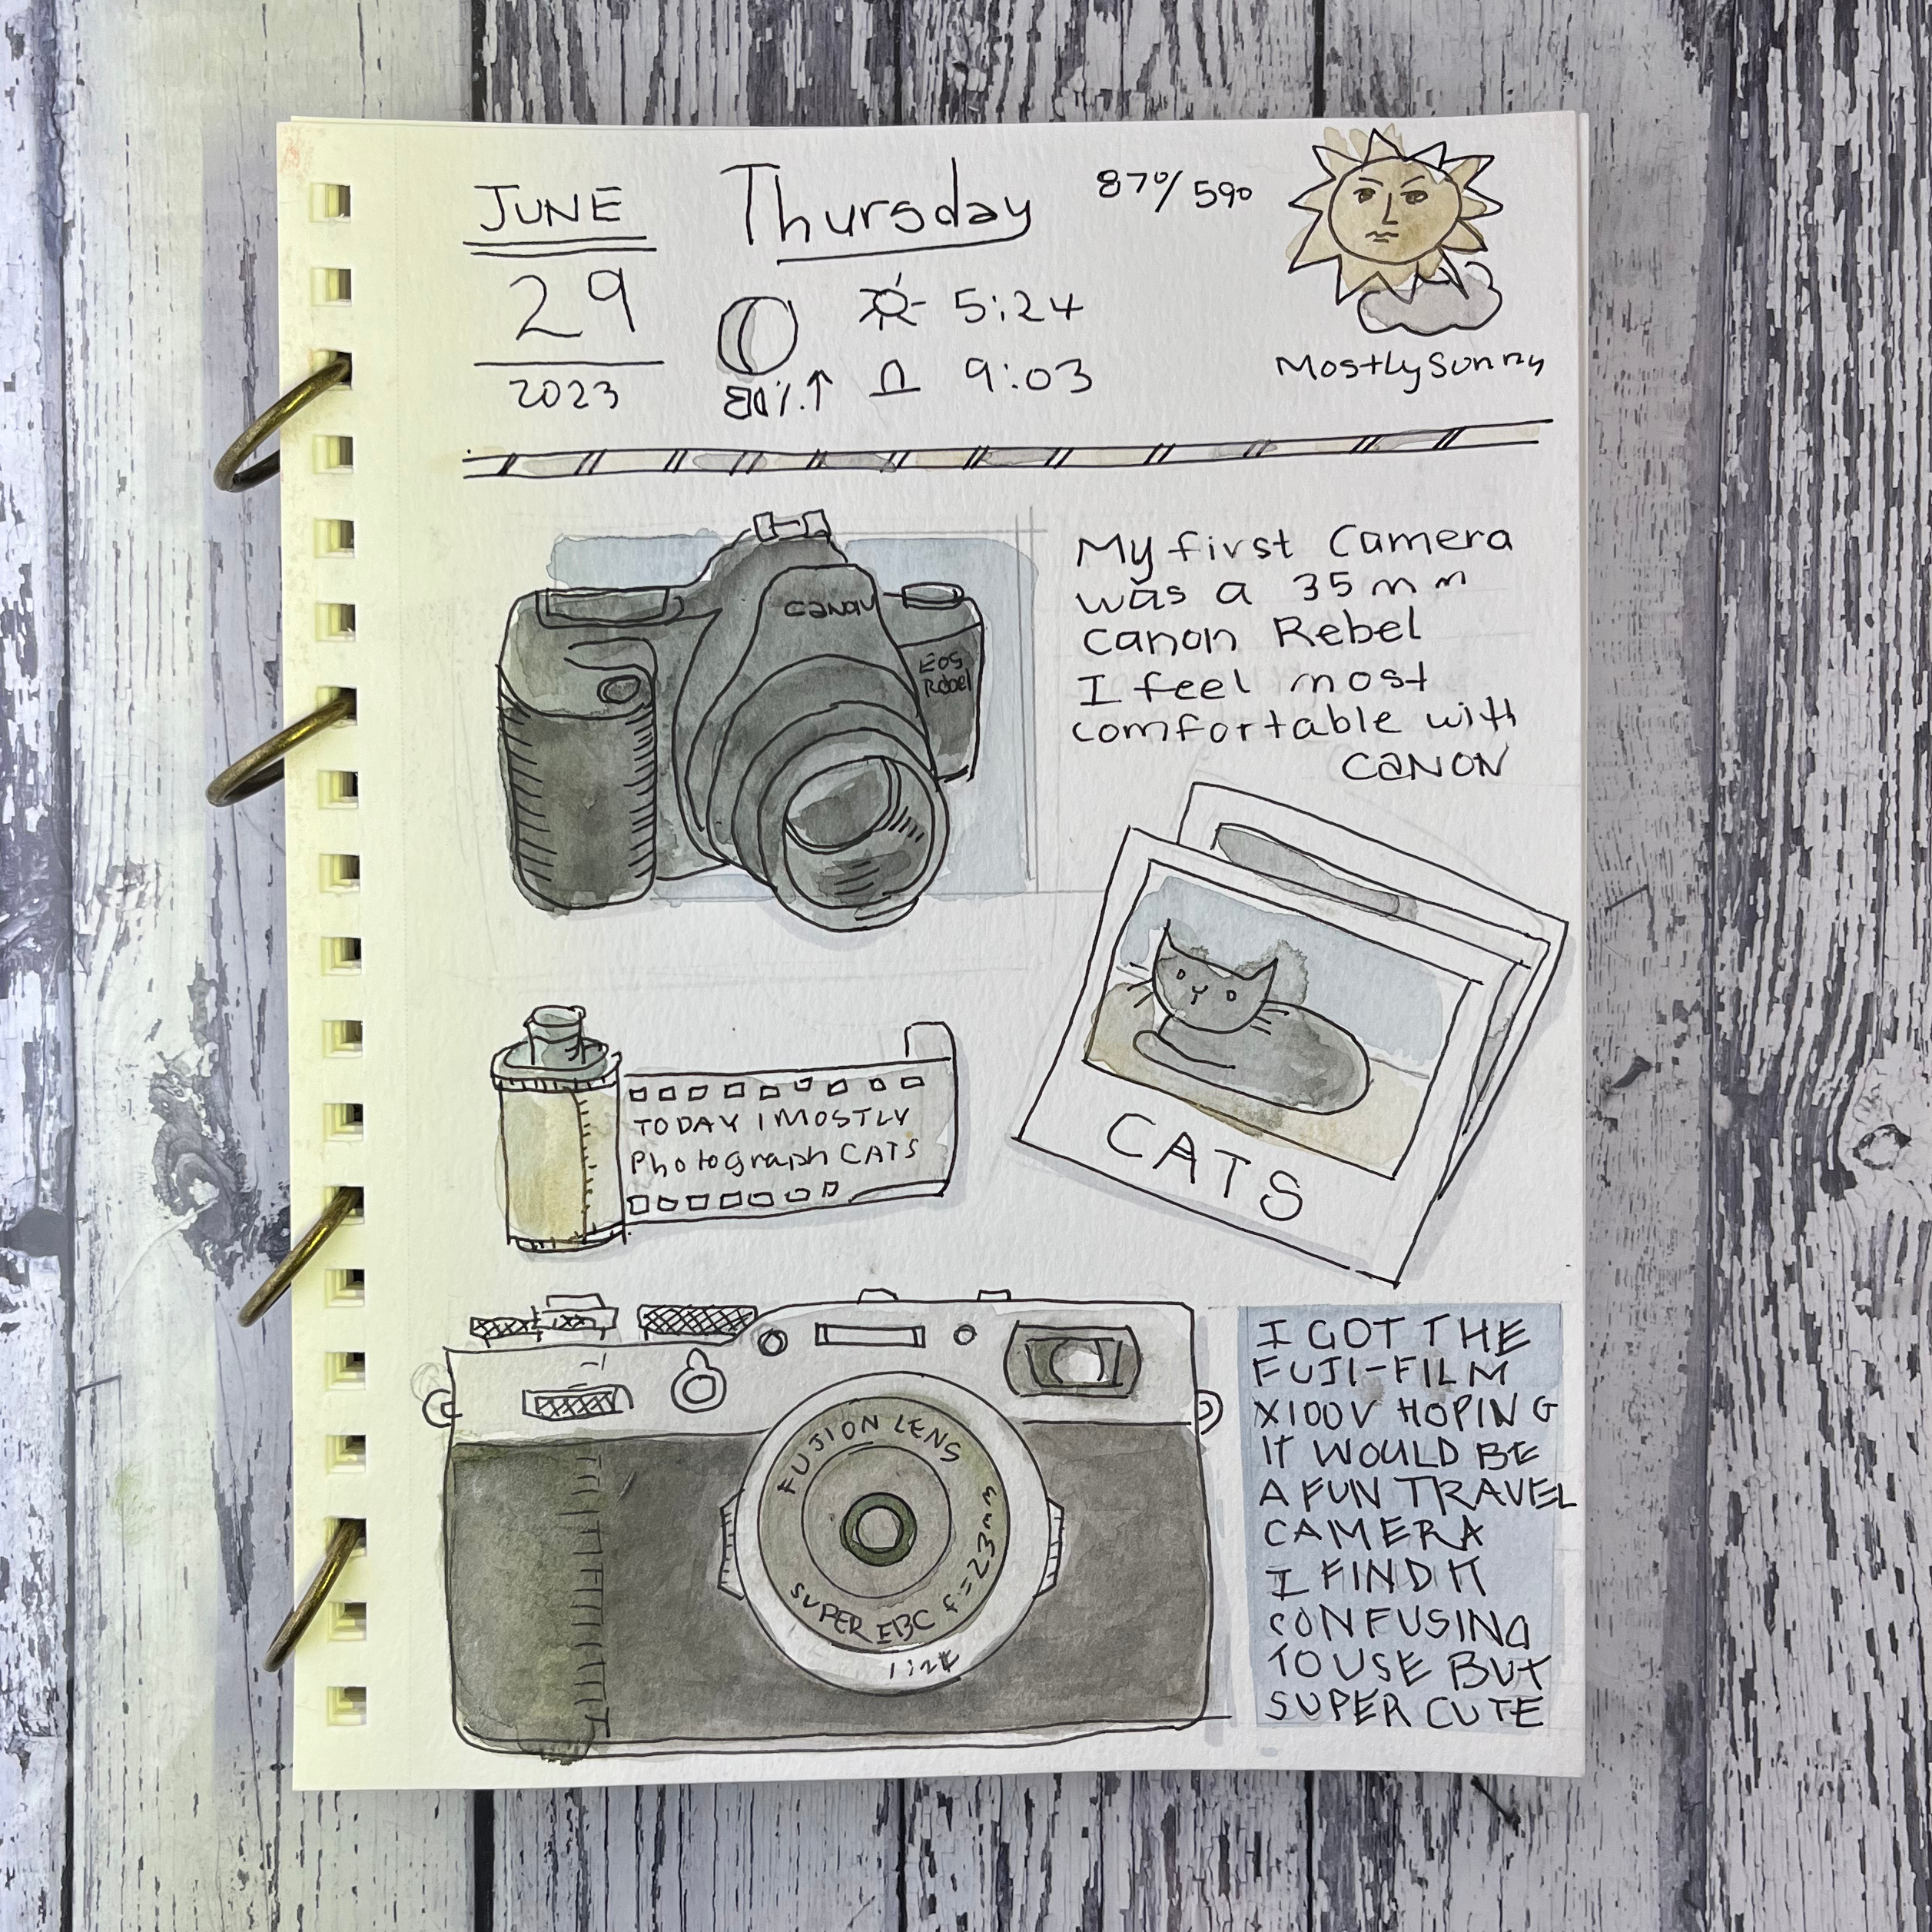 JUNE
29
2023
Thursday
87°/59°
5:24
80%↑
9:03
Mostly Sunny
Canon
EOS
Rebel
My first Camera
was a 35mm
Canon Rebel
I feel most
comfortable with
CANON
CATS
TODAY I MOSTLY
Photograph CATS
FUJION LENS
SUPER EBC f=23mm
I GOT THE
FUJI-FILM
X100V HOPING
IT WOULD BE
A FUN TRAVEL
CAMERA
I FIND IT
CONFUSING
TO USE BUT
SUPER CUTE